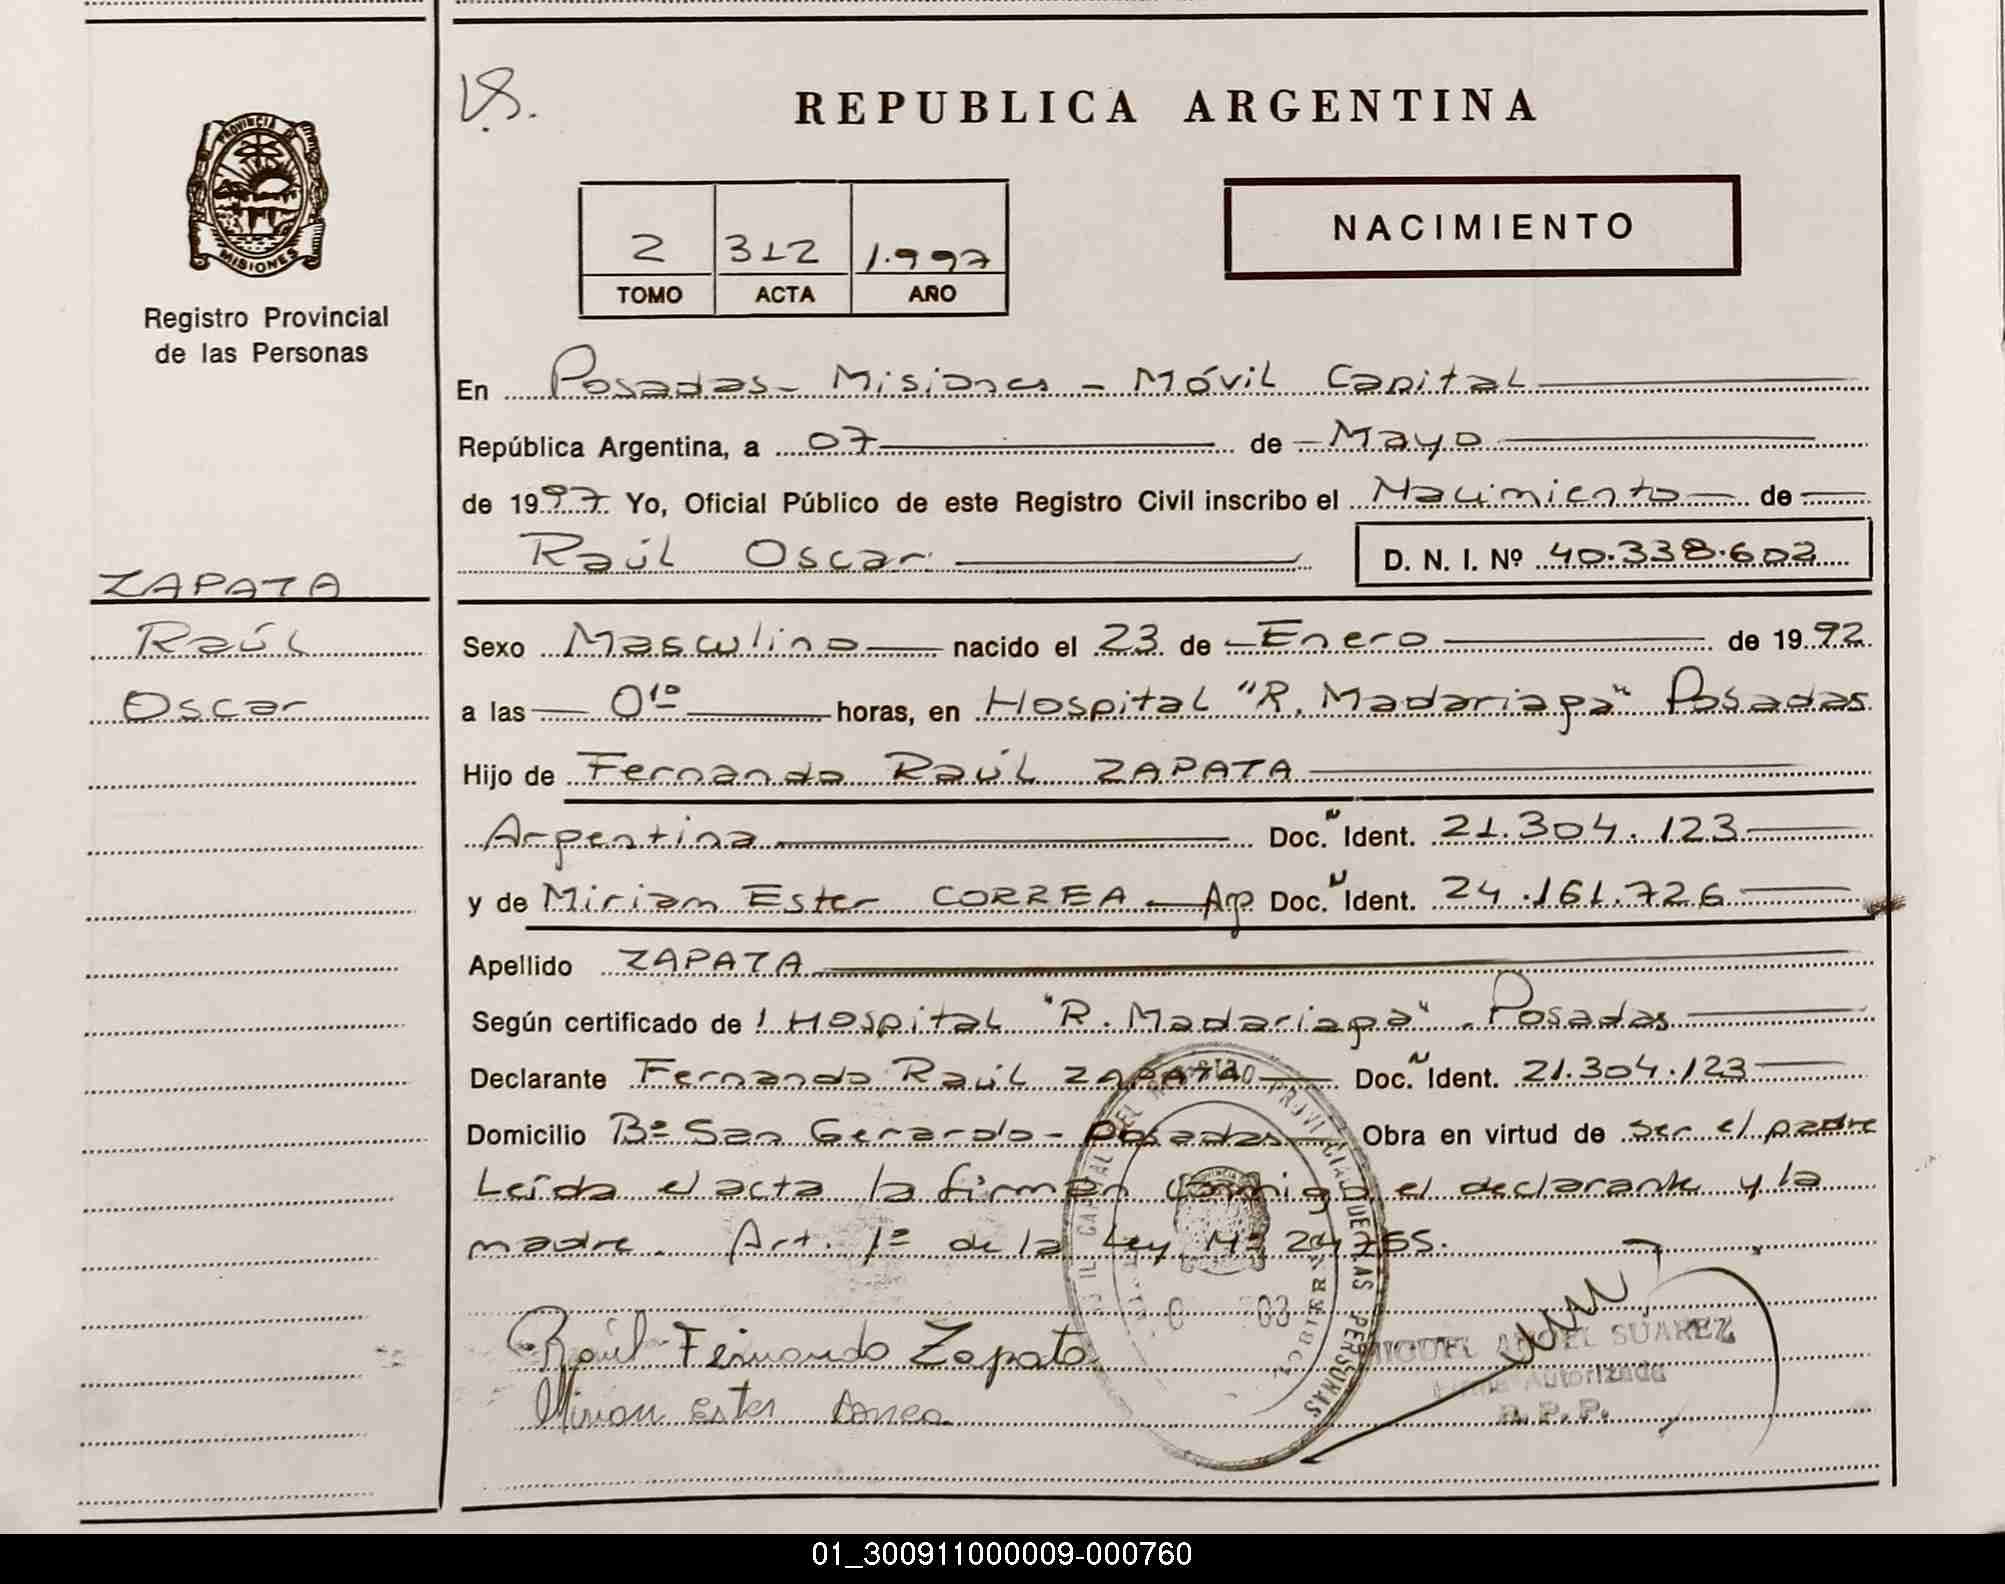 V.S.
REPUBLICA ARGENTINA
PROVINCIA DE
MISIONES
Registro Provincial
de las Personas
2 312 1.997
TOMO ACTA AÑO
NACIMIENTO
En Posadas - Misiones - Móvil Capital
República Argentina, a 07 de Mayo
de 1997 Yo, Oficial Público de este Registro Civil inscribo el Nacimiento de
Raúl Oscar D. N. I. Nº 40.338.602
ZAPATA
Raúl
Oscar
Sexo Masculino nacido el 23 de Enero de 1992
a las 0¹⁰ horas, en Hospital "R. Madariaga" Posadas
Hijo de Fernando Raúl ZAPATA
Argentina Doc. Ident. 21.304.123
y de Miriam Ester CORREA - Arg. Doc. Ident. 24.161.726
Apellido ZAPATA
Según certificado de l Hospital "R. Madariaga". Posadas
Declarante Fernando Raúl ZAPATA Doc. Ident. 21.304.123
Domicilio Bº San Gerardo - Posadas Obra en virtud de ser el padre
Leída el acta la firman conmigo el declarante y la
madre. Art. 1º de la Ley Nº 24755.
Raúl Fernando Zapata
Mirian Ester Correa
MIGUEL ANGEL SUAREZ
Firma Autorizada
R. P. P.
01_300911000009-000760